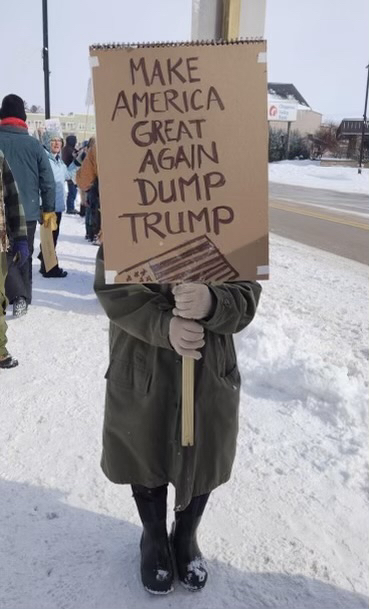 MAKE
AMERICA
GREAT
AGAIN
DUMP
TRUMP